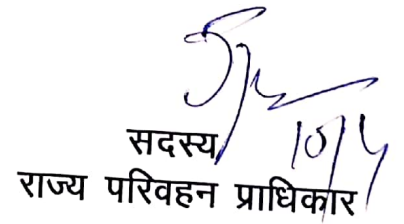 10/4
सदस्य
राज्य परिवहन प्राधिकार